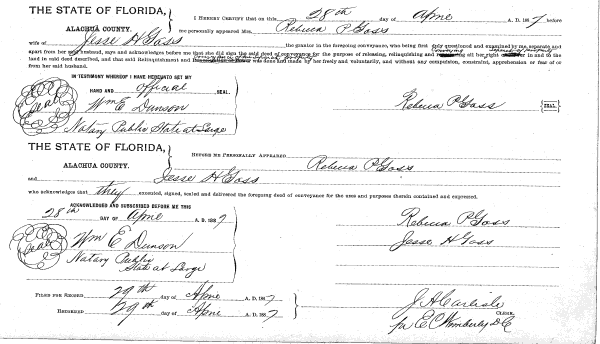 THE STATE OF FLORIDA,
ALACHUA COUNTY.
I HEREBY CERTIFY that on this 28th day of April A. D. 1887 before
me personally appeared Mrs. Rebecca P Goss
wife of Jesse H Goss the grantor in the foregoing conveyance, who being first duly questioned and examined by me, separate and
apart from her said husband, says and acknowledges before me that she did sign the said deed of conveyance for the purpose of releasing, relinquishing and all her right in and to the
land in said deed described, and that said Relinquishment and was done and made by her freely and voluntarily, and without any compulsion, constraint, apprehension or fear of or
from her said husband.
IN TESTIMONY WHEREOF I HAVE HEREUNTO SET MY
HAND AND official SEAL.
Seal
Wm E Dunson
Notary Public State at Large
Rebecca P Goss SEAL
THE STATE OF FLORIDA,
ALACHUA COUNTY.
BEFORE ME PERSONALLY APPEARED Rebecca P Goss
and Jesse H Goss
who acknowledges that they executed, signed, sealed and delivered the foregoing deed of conveyance for the uses and purposes therein contained and expressed.
ACKNOWLEDGED AND SUBSCRIBED BEFORE ME THIS
28th DAY OF April A. D. 1887
Seal
Wm E Dunson
Notary Public
State at Large
Rebecca P Goss
Jesse H Goss
FILED FOR RECORD 29th day of April A. D. 1887
RECORDED 29th day of April A. D. 1887
J A Carlisle
CLERK.
pr E C Wimberly D C